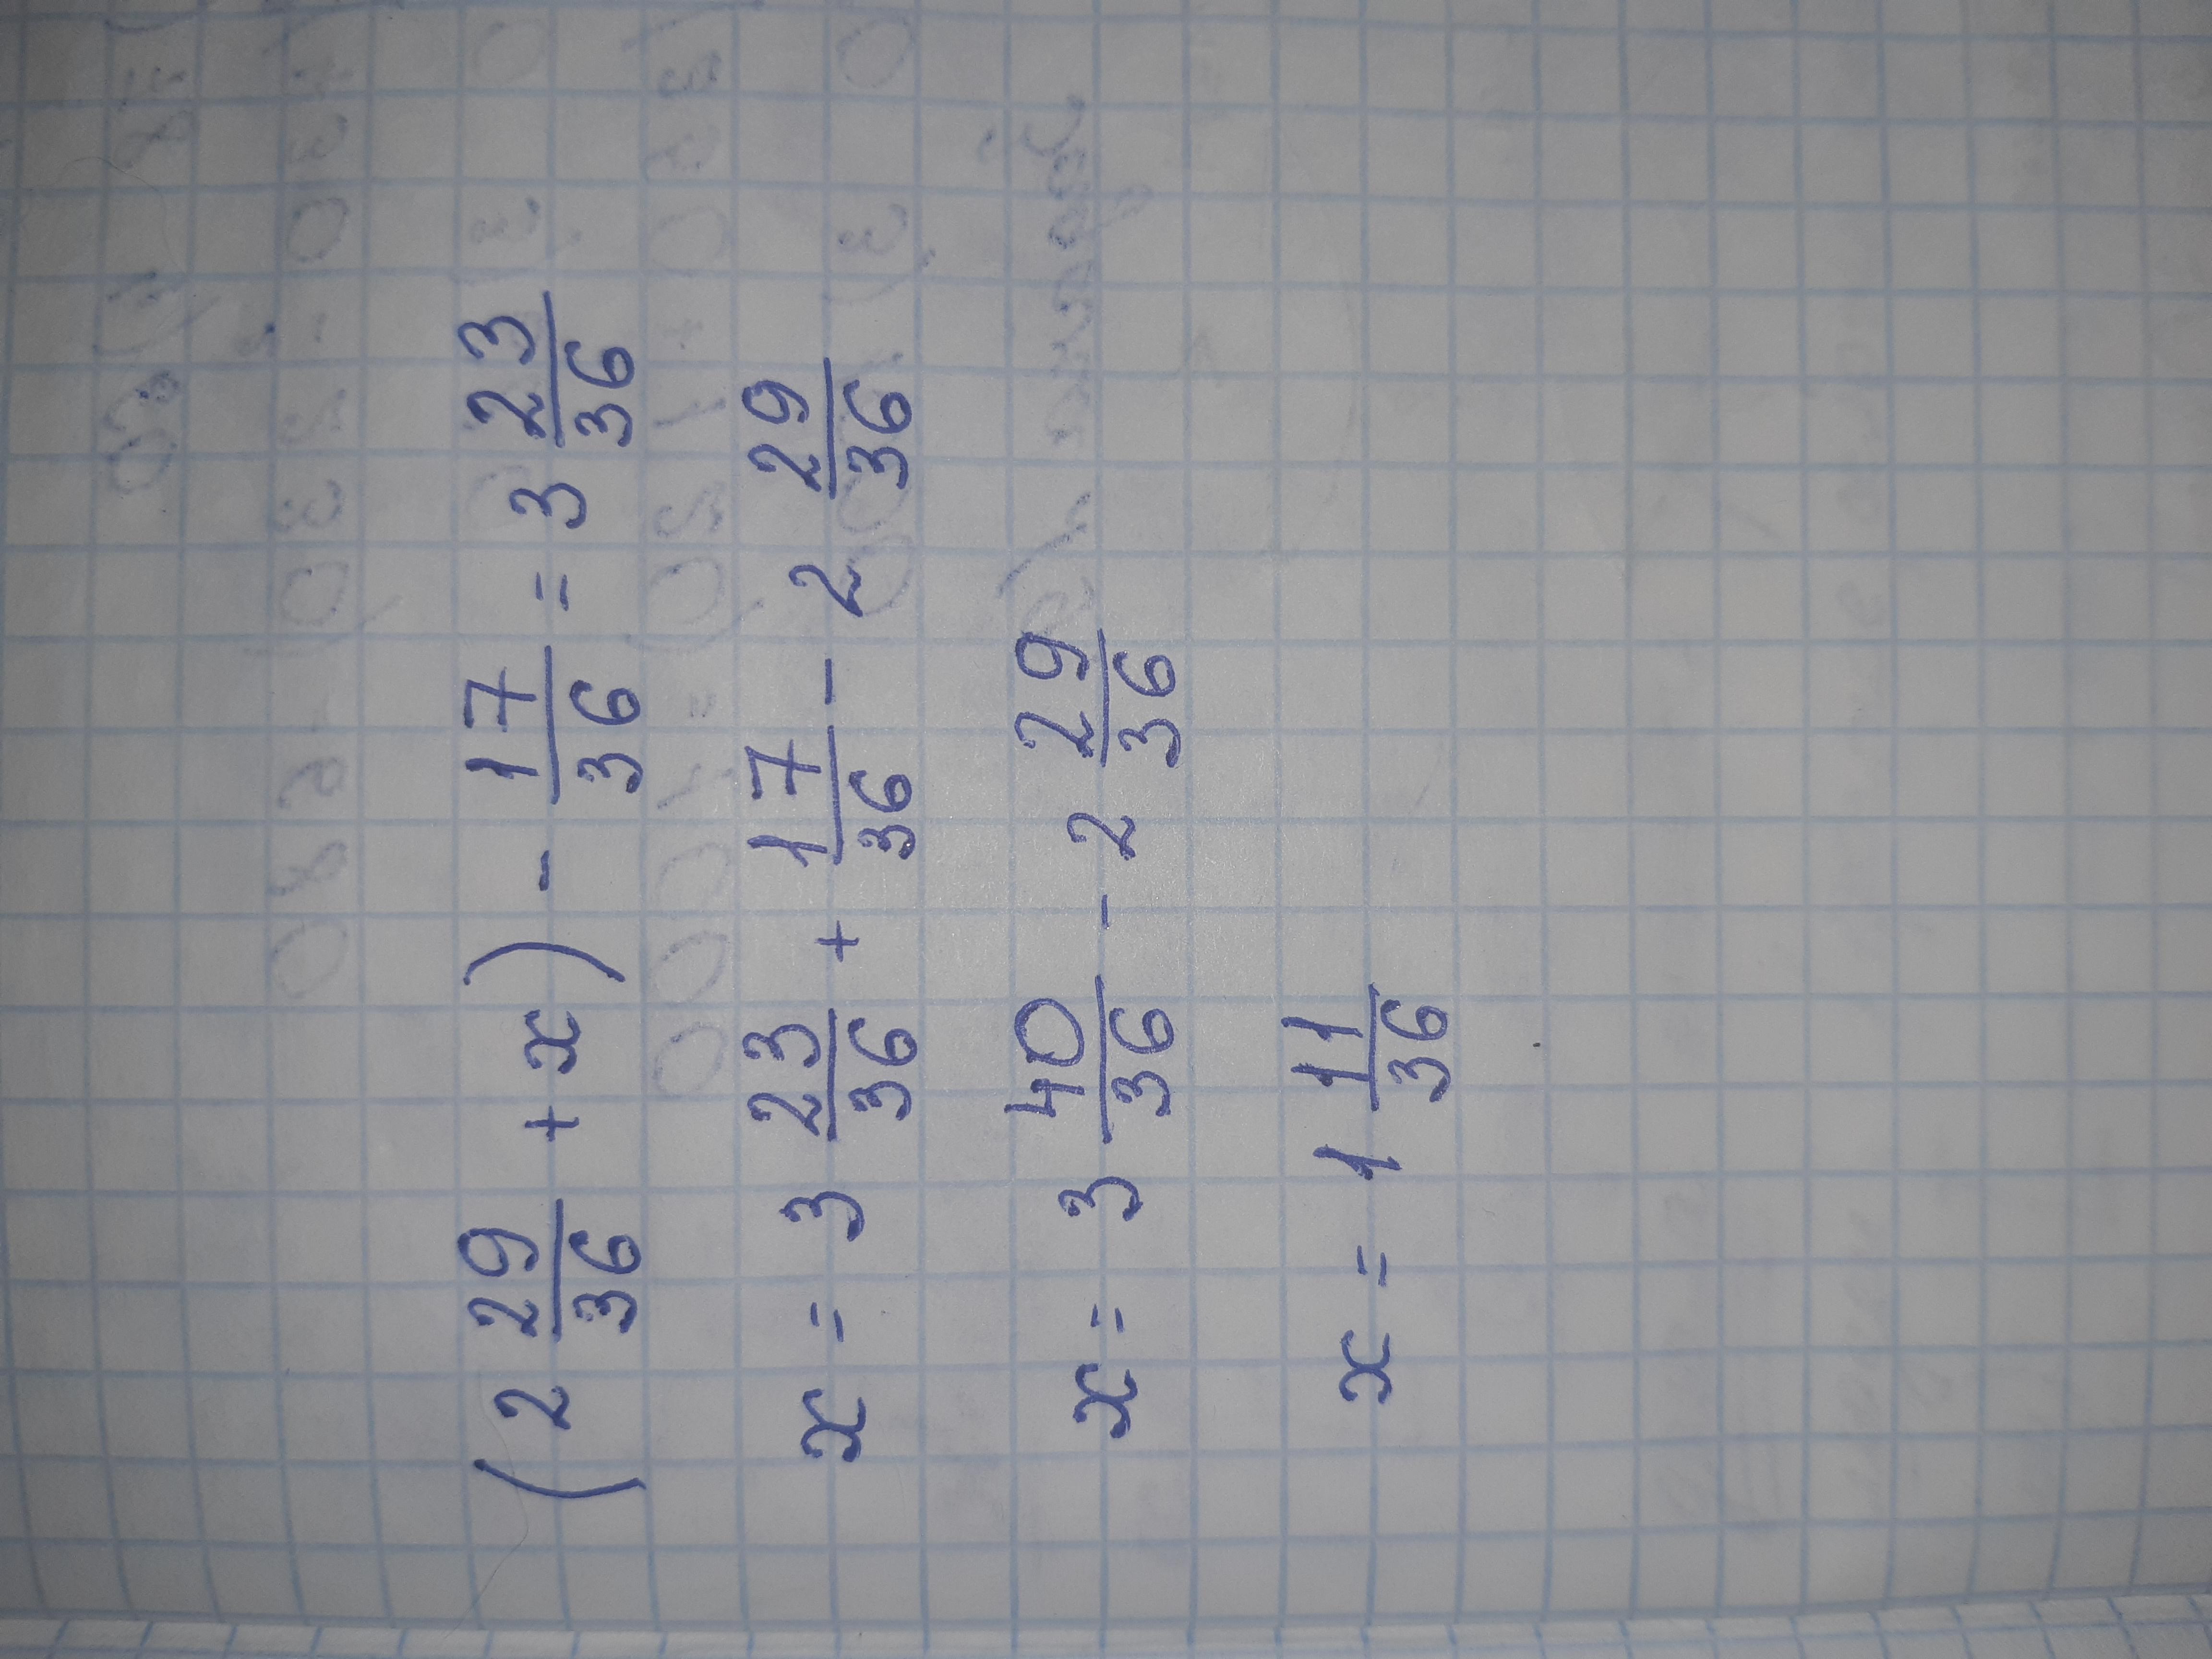 (2 29/36 + x) - 17/36 = 3 23/36
x = 3 23/36 + 17/36 - 2 29/36
x = 3 40/36 - 2 29/36
x = 1 11/36